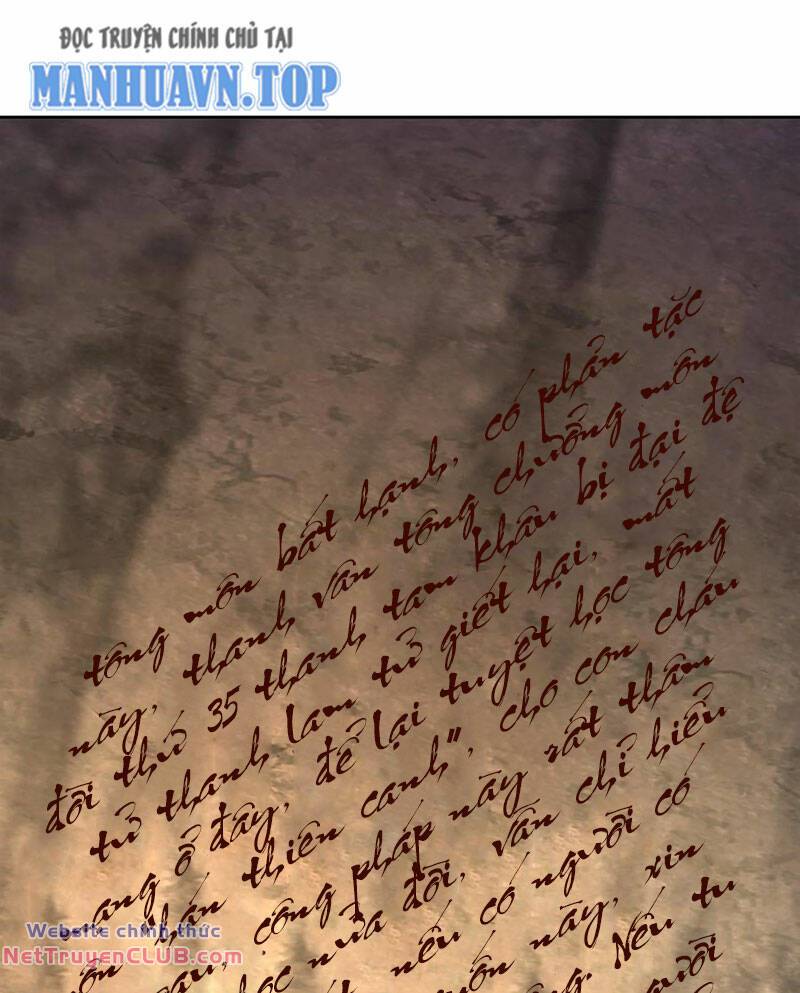 ĐỌC TRUYỆN CHÍNH CHỦ TẠI
MANHUAVN.TOP
tông môn bất hạnh, có phản tặc
này, thanh vân tông chưởng môn
đời thứ 35 thanh tam khâu bị đại đệ
tử thanh lam tử giết hại, mất
mạng ở đây, để lại tuyệt học tông
môn "hán thiên canh", cho con cháu
sau, công pháp này rất thâm
học nửa đời, vẫn chỉ hiểu
nếu có người có
môn này, xin
Nếu tu
Website chính thức
NetTruyenClub.com